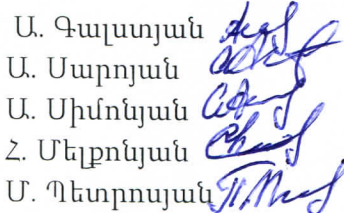 Ա. Գալստյան
Ա. Սարոյան
Ա. Սիմոնյան
Հ. Մելքոնյան
Մ. Պետրոսյան